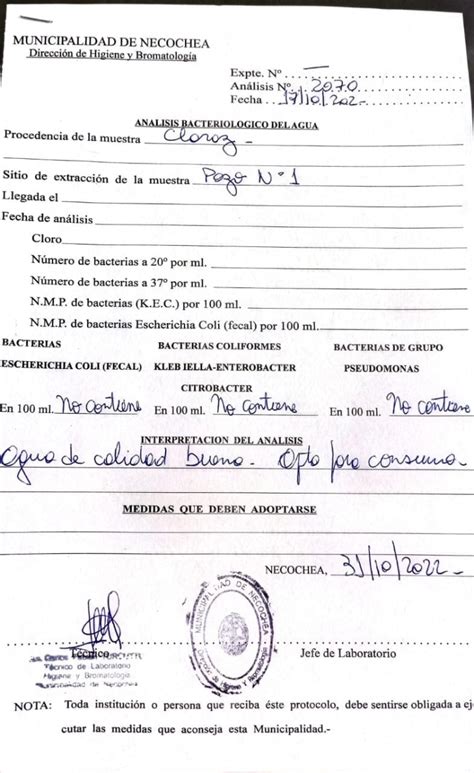 MUNICIPALIDAD DE NECOCHEA
Dirección de Higiene y Bromatología
Expte. Nº
Análisis Nº 2070
Fecha 17/10/202-
ANALISIS BACTERIOLOGICO DEL AGUA
Procedencia de la muestra
Sitio de extracción de la muestra Pozo Nº 1
Llegada el
Fecha de análisis
Cloro
Número de bacterias a 20º por ml.
Número de bacterias a 37º por ml.
N.M.P. de bacterias (K.E.C.) por 100 ml.
N.M.P. de bacterias Escherichia Coli (fecal) por 100 ml.
BACTERIAS BACTERIAS COLIFORMES BACTERIAS DE GRUPO
ESCHERICHIA COLI (FECAL) KLEB IELLA-ENTEROBACTER PSEUDOMONAS
CITROBACTER
En 100 ml. No contiene En 100 ml. No contiene En 100 ml. No contiene
INTERPRETACION DEL ANALISIS
Agua de calidad buena - Apta para consumo -
MEDIDAS QUE DEBEN ADOPTARSE
NECOCHEA, 31/10/2022 -
MUNICIPALIDAD DE NECOCHEA
Dirección de Higiene y Bromatología
Técnico Jefe de Laboratorio
Técnico de Laboratorio
Higiene y Bromatología
Municipalidad de Necochea
NOTA: Toda institución o persona que reciba éste protocolo, debe sentirse obligada a eje
cutar las medidas que aconseja esta Municipalidad.-